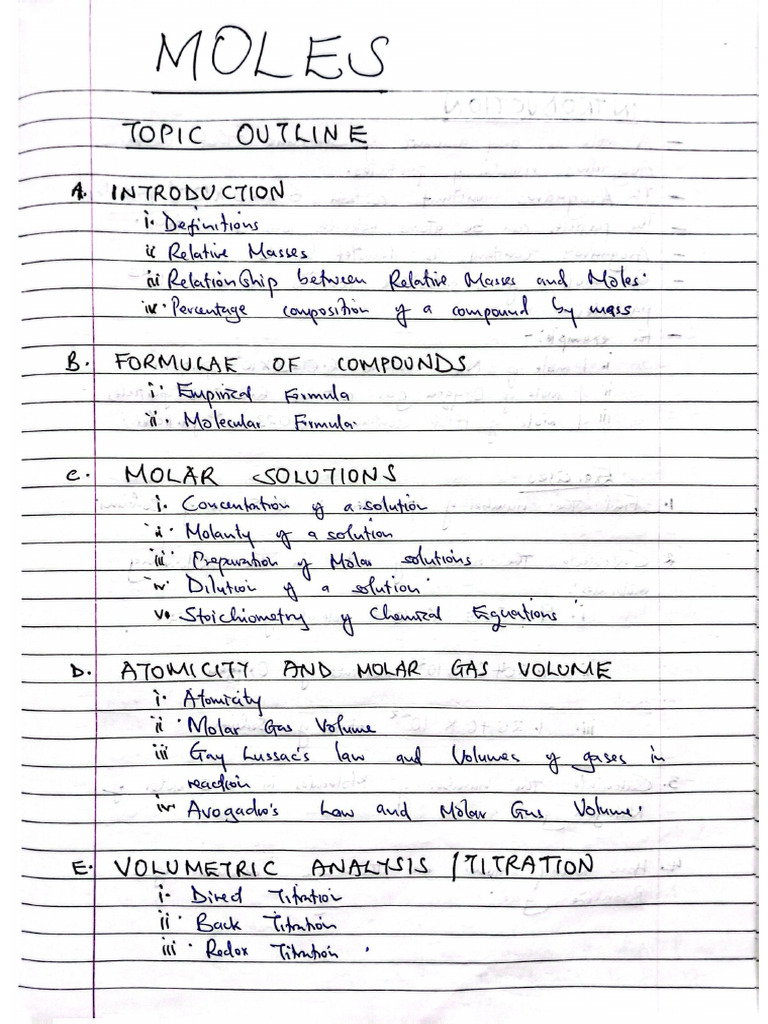 MOLES
TOPIC OUTLINE
A. INTRODUCTION
i. Definitions
ii Relative Masses
iii Relationship between Relative Masses and Moles.
iv. Percentage composition of a compound by mass
B. FORMULAE OF COMPOUNDS
i. Empirical Formula
ii. Molecular Formula.
C. MOLAR SOLUTIONS
i. Concentration of a solution
ii. Molarity of a solution
iii. Preparation of Molar solutions
iv. Dilution of a solution.
v. Stoichiometry of Chemical Equations
D. ATOMICITY AND MOLAR GAS VOLUME
i. Atomicity
ii. Molar Gas Volume
iii Gay Lussac's law and Volumes of gases in
reaction
iv. Avogadro's Law and Molar Gas Volume.
E. VOLUMETRIC ANALYSIS / TITRATION
i. Direct Titration
ii. Back Titration
iii. Redox Titration.